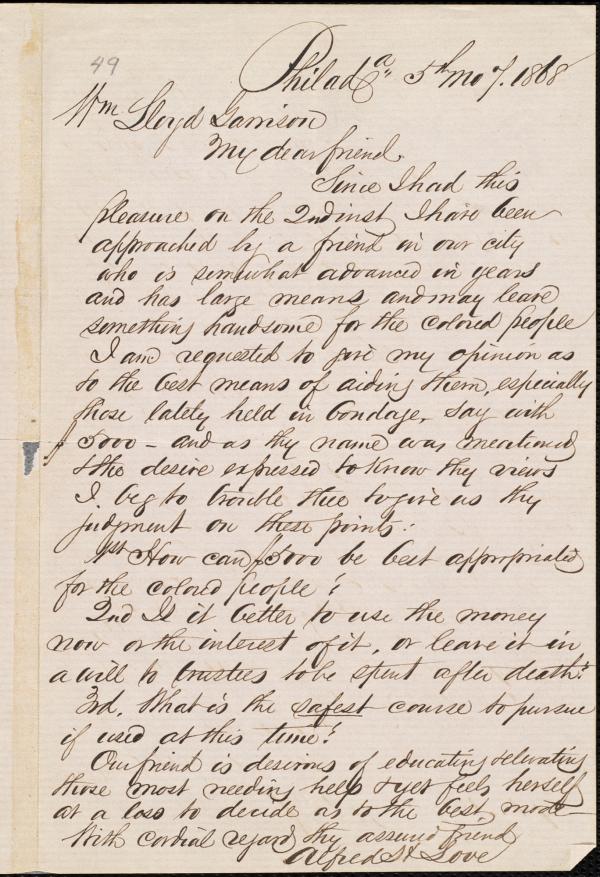 49
Philada. 5th mo 7. 1868
Wm Lloyd Garrison
My dear friend.
Since I had this
pleasure on the 2nd inst I have been
approached by a friend in our city
who is somewhat advanced in years
and has large means and may leave
something handsome for the colored people
I am requested to give my opinion as
to the best means of aiding them, especially
those lately held in bondage, say with
$5000 - and as thy name was mentioned
& the desire expressed to know thy views
I beg to trouble thee to give us thy
judgment on these points:
1st How can $5000 be best appropriated
for the colored people?
2nd Is it better to use the money
now or the interest of it, or leave it in
a will to trustees to be spent after death?
3rd. What is the safest course to pursue
if used at this time?
Our friend is desirous of educating & elevating
those most needing help & yet feels herself
at a loss to decide as to the best mode
With cordial regard thy assured friend
Alfred H. Love